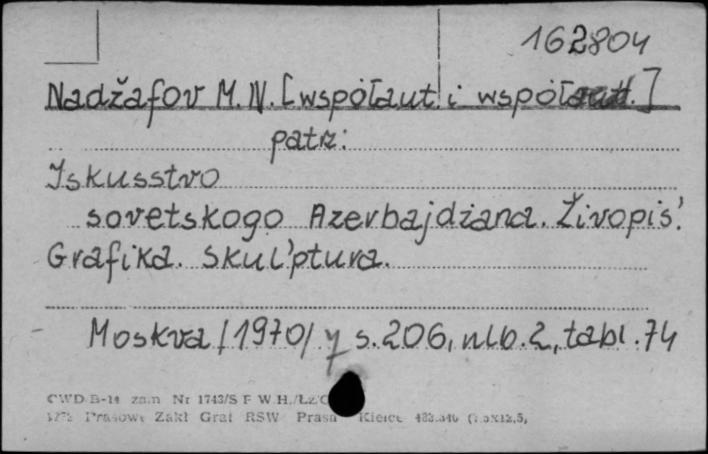 162804
Nadžafov M. N. [współaut. i współ
patrz:
Iskusstvo
sovetskogo Azerbajdžana. Živopis'.
Grafika. Skul'ptura.
Moskva /1970/ s. 206, nlb. 2, tabl. 74
CWD B-14 zam Nr 1743/S F W.H./Łzg
Prasowe Zakł Graf RSW Prasa Kielce